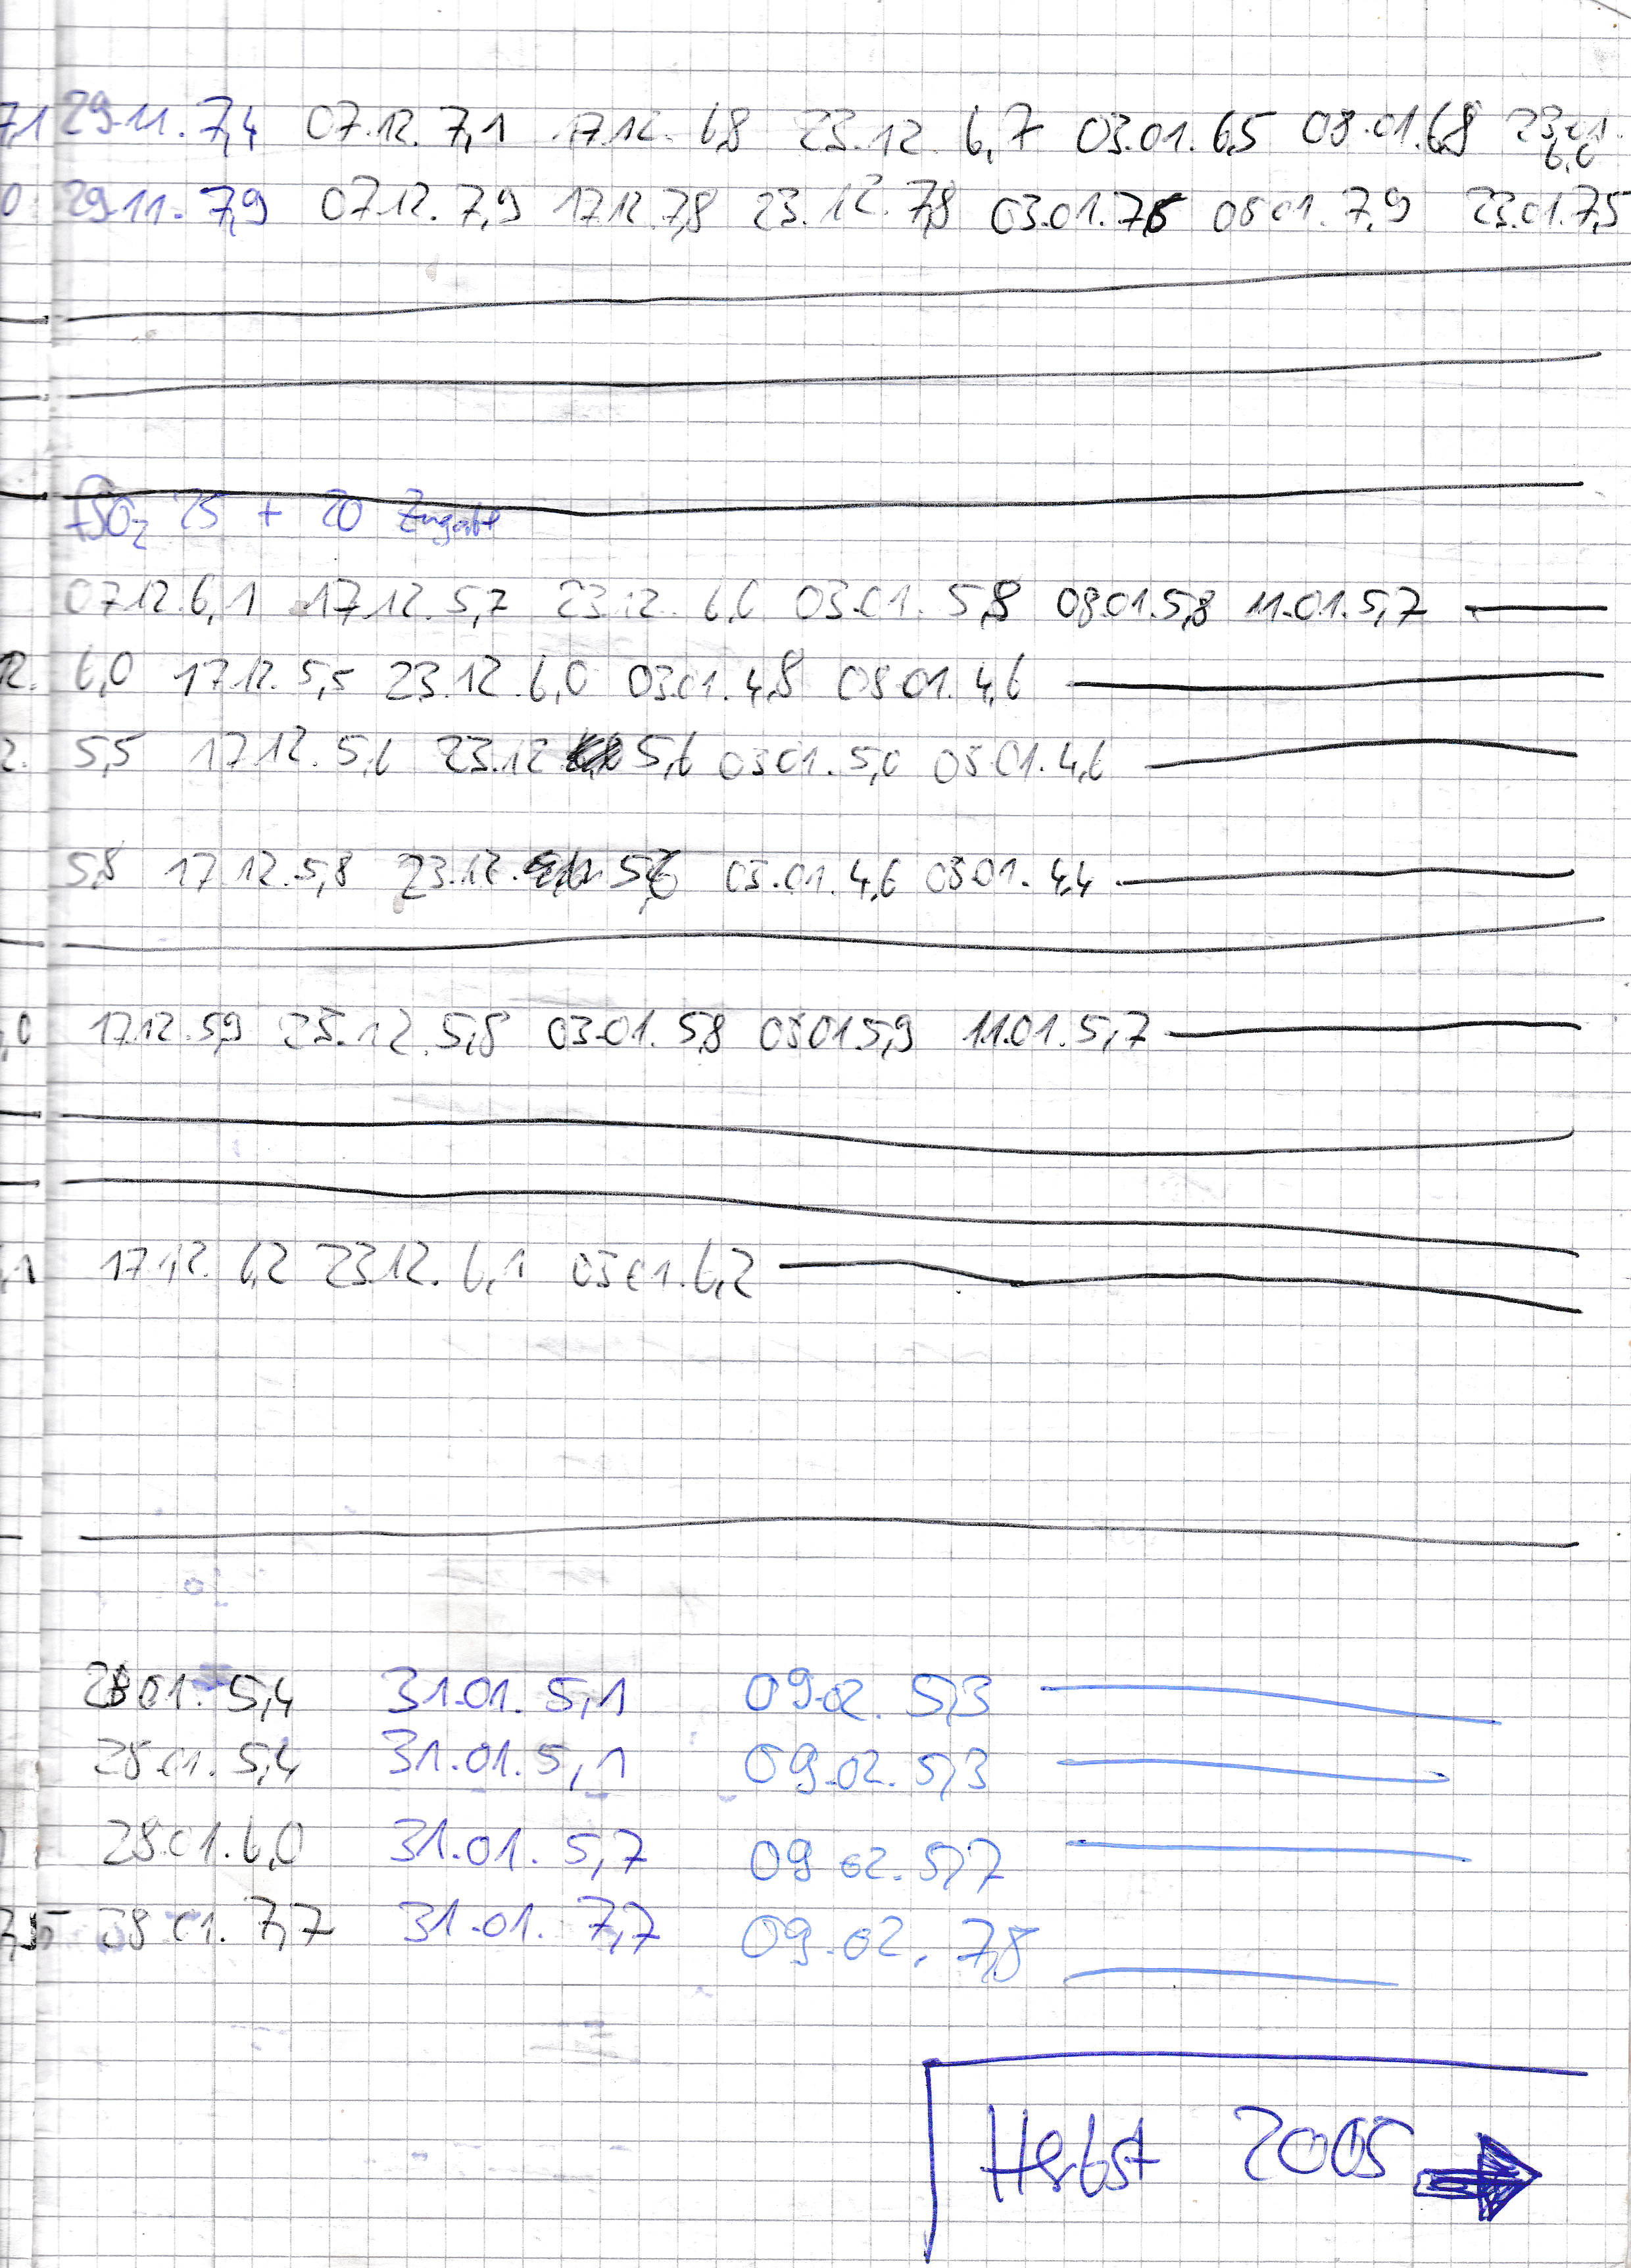 7,1 29.11. 7,4 07.12. 7,1 17.12. 6,8 23.12. 6,7 03.01. 6,5 08.01. 6,8 23.01.
6,6
0 29.11. 7,9 07.12. 7,9 17.12. 7,8 23.12. 7,8 03.01. 7,6 08.01. 7,9 23.01. 7,5
fSO2 25 + 20 Zugabe
07.12. 6,1 17.12. 5,7 23.12. 6,0 03.01. 5,8 08.01. 5,8 11.01. 5,7
12. 6,0 17.12. 5,5 23.12. 6,0 03.01. 4,8 08.01. 4,6
2. 5,5 17.12. 5,6 23.12 5,6 03.01. 5,0 08.01. 4,6
5,8 17.12. 5,8 23.12. 03.01. 4,6 08.01. 4,4
,0 17.12. 5,9 23.12. 5,8 03.01. 5,8 08.01 5,9 11.01. 5,7
,1 17.12. 6,2 23.12. 6,1 03.01. 6,2
28.01. 5,4 31.01. 5,1 09.02. 5,3
28.01. 5,4 31.01. 5,1 09.02. 5,3
28.01. 6,0 31.01. 5,7 09.02. 5,7
28.01. 7,7 31.01. 7,7 09.02. 7,8
Herbst 2005